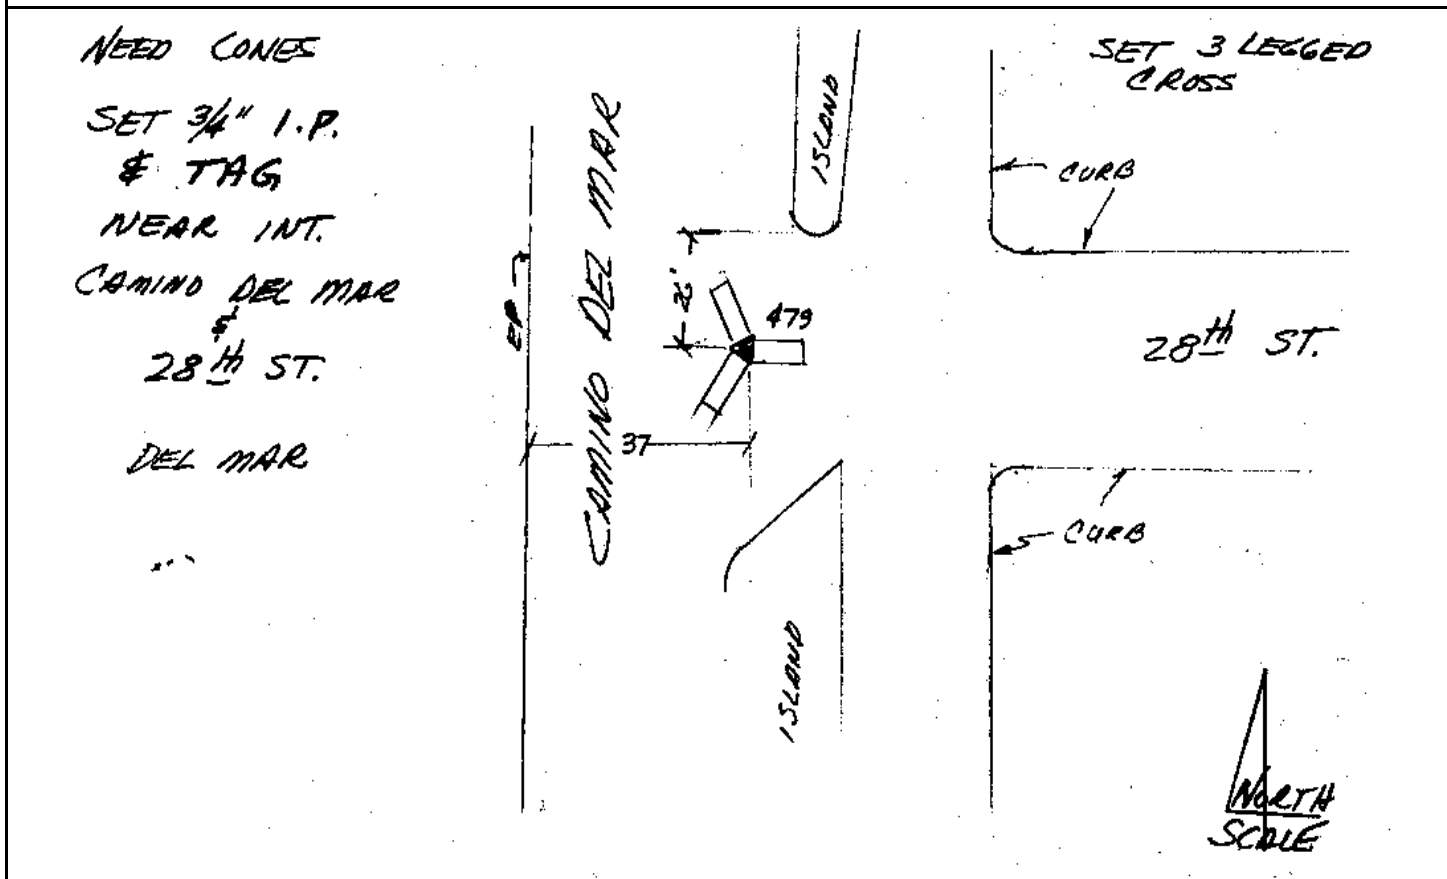 NEED CONES
SET 3/4" I.P.
& TAG
NEAR INT.
CAMINO DEL MAR
&
28th ST.
DEL MAR
EP
CAMINO DEL MAR
26'
479
37
ISLAND
ISLAND
SET 3 LEGGED
CROSS
CURB
28th ST.
CURB
NORTH
SCALE